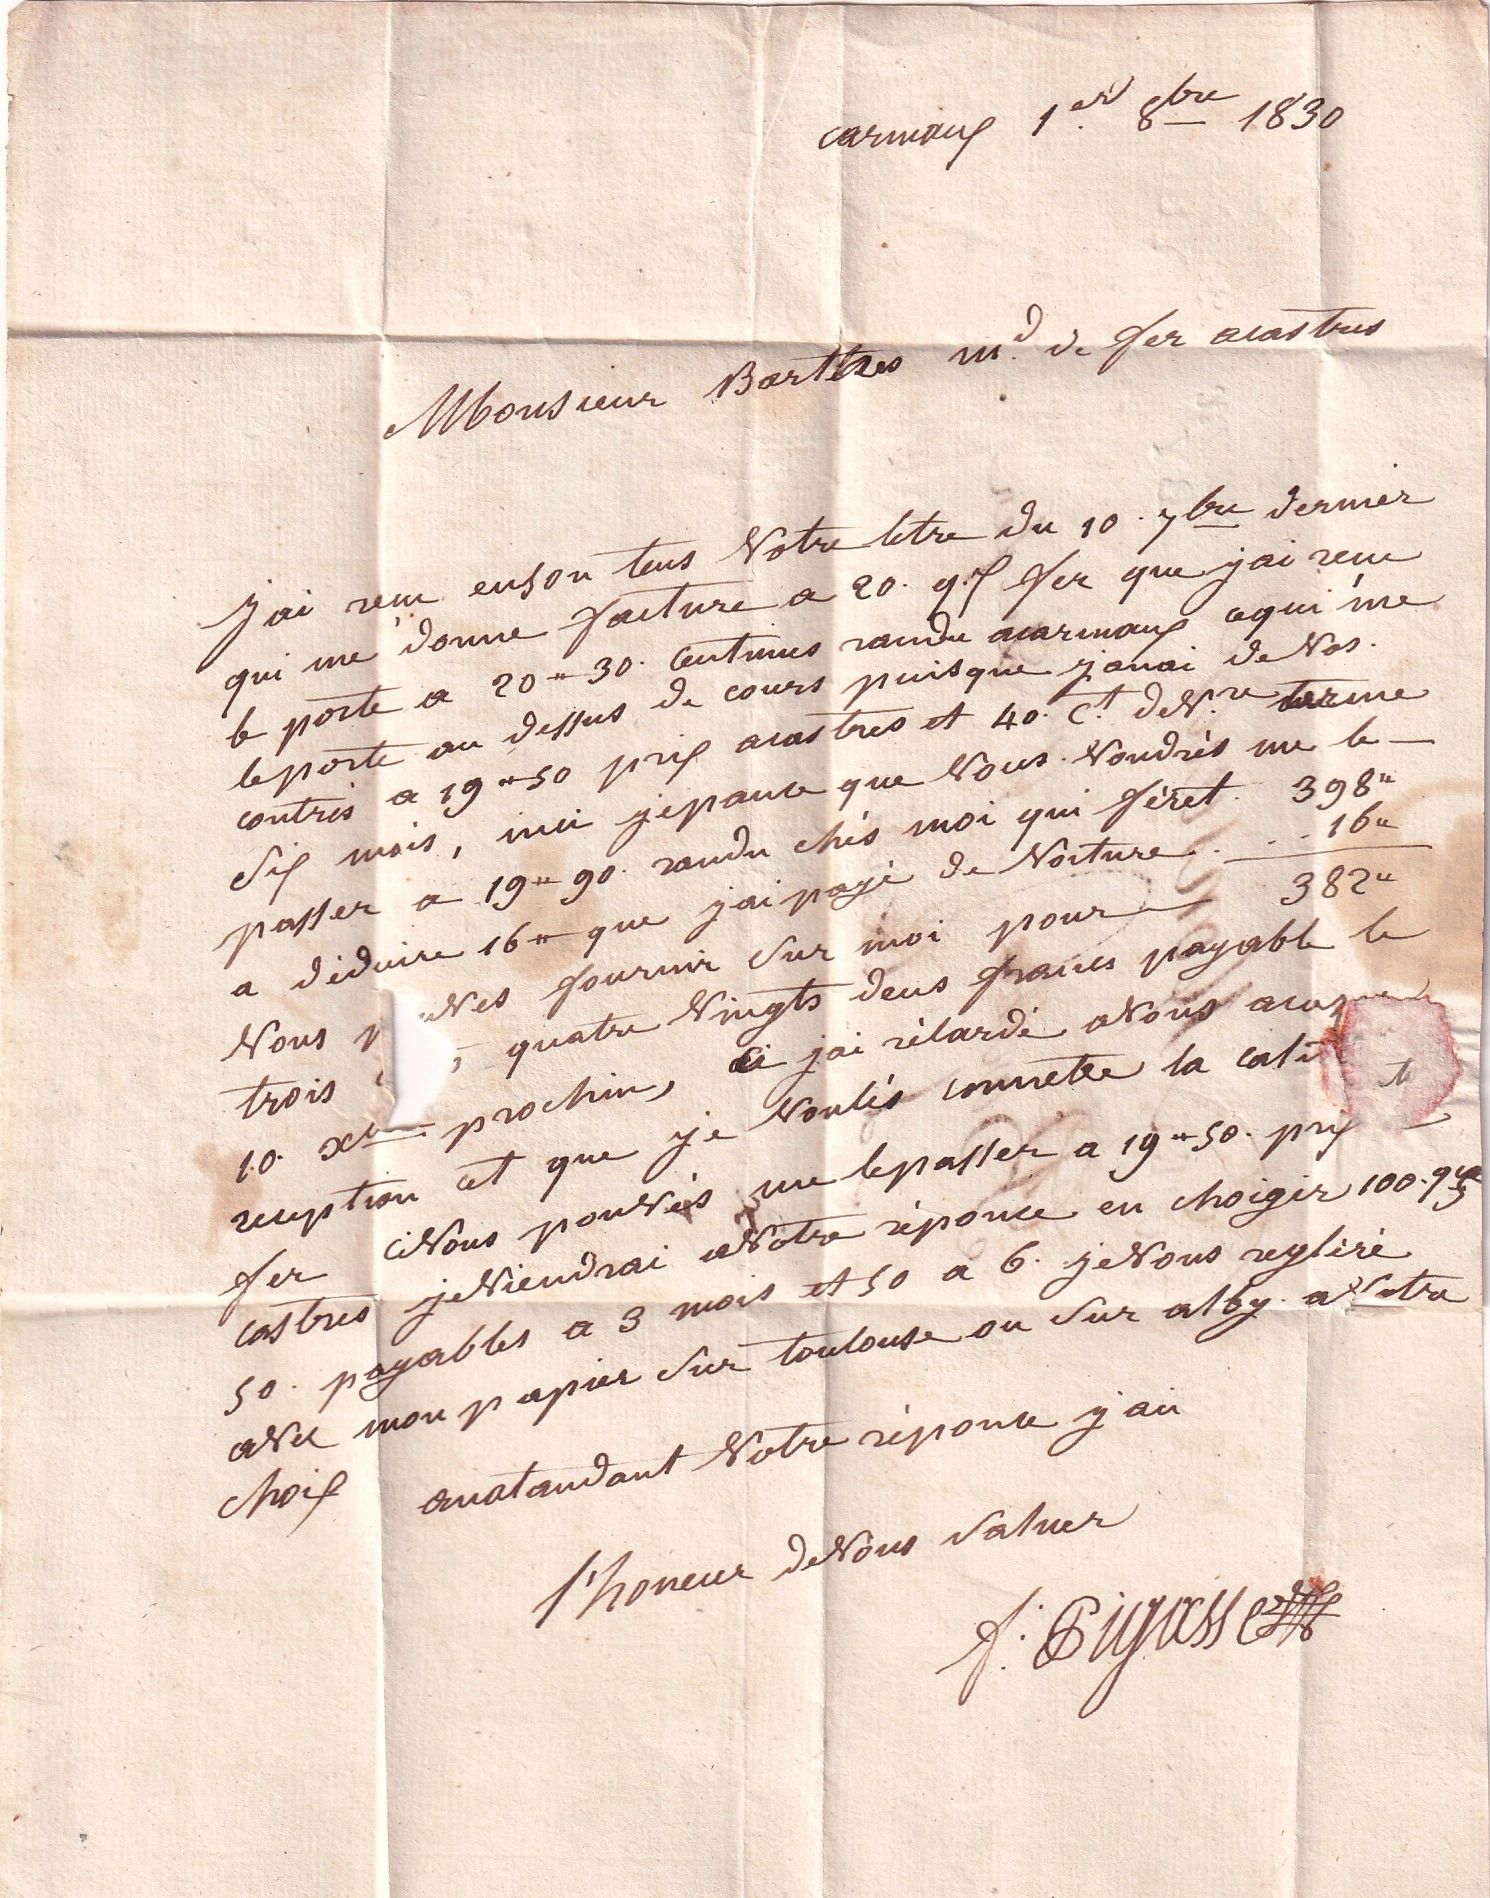 carmaux 1er 8bre 1830
Monsieur Barthes md de fer acastres
J'ai recu enson tens Votre letre du 10. 7bre dernier
qui me donne facture a 20. qx fer que j'ai recu
le porte a 20"30. Centimes randu acarmaux cequi me
leporte au dessus de cours puisque j'anai de Vos.
contris a 19"50 prix acastres et 40. Ct. deVre terme
Six mois, insi jepance que Vous Voudrés me le
passer a 19"90. randu chés moi qui féret. 398"
a déduire 16" que j'ai payé de Voiture . . . 16"
Vous fournir Sur moi pour 382"
trois quatre Vingts deus francs payable le
10. xbre prochin, Ci j'ai rétardé aVous
reception cet que je Voulés connetre la
fer CiVous pouVés me lepasser a 19"50. prix
castres jeViendrai aVotre réponce en choigir 100. qx
50. payables a 3 mois et 50 a 6. jeVous regliré
aVec mon papier Sur toulouse ou Sur alby. a Votre
choix anatandant Votre réponce j'ai
l'honeur deVous Saluer
f. Bigasse